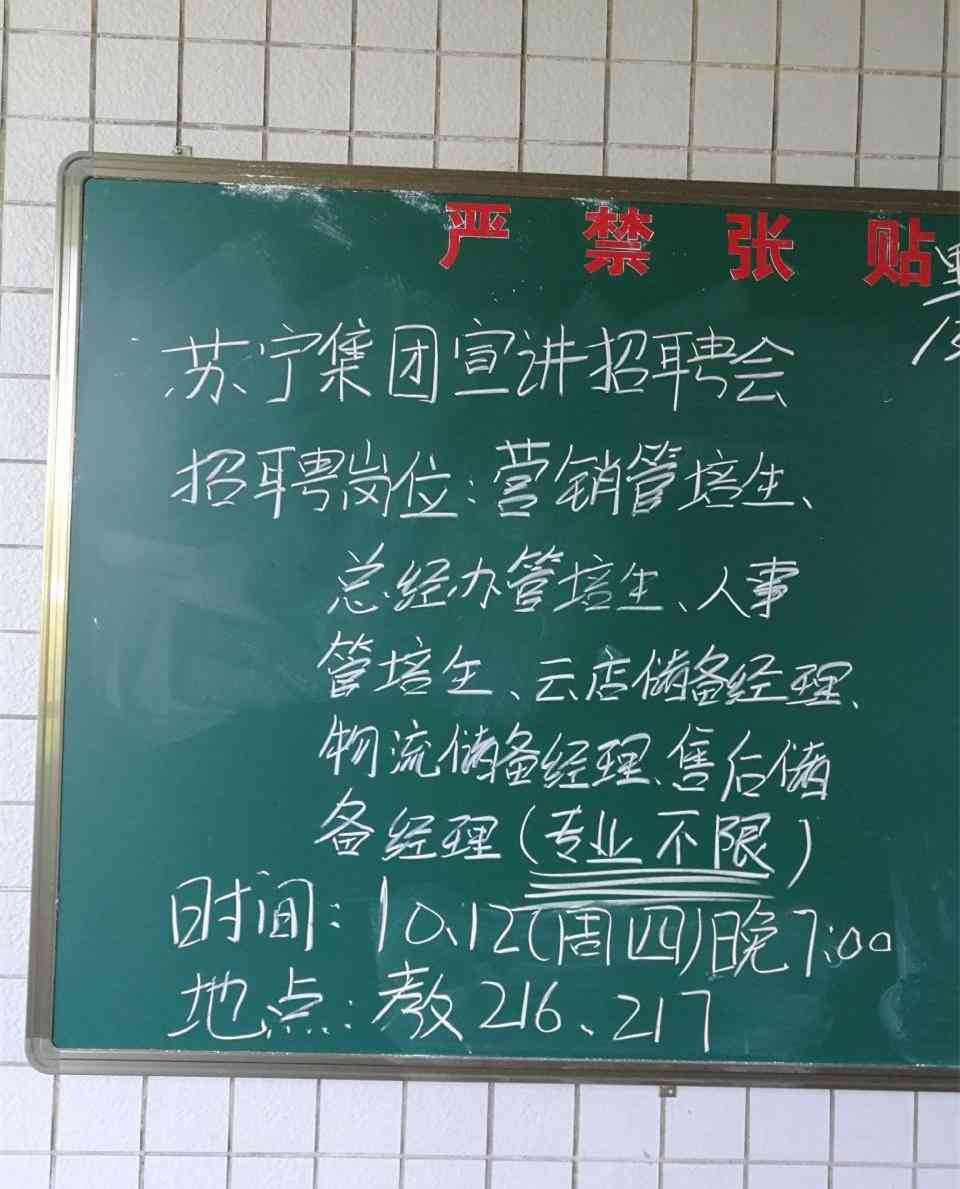 严禁张贴
苏宁集团宣讲招聘会
招聘岗位：营销管培生、
总经办管培生、人事
管培生、云店储备经理、
物流储备经理、售后储
备经理（专业不限）
时间：10.12(周四)晚7:00
地点：教216、217